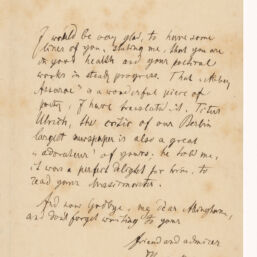 I would be very glad, to have some
lines of you, stating me, that you are
in good health and your poetical
works in steady progress. That "Abbey
Assaroe" is a wonderful piece of
poetry, I have translated it. Titus
Ulrich, the critic of our Berlin
largest newspaper is also a great
"adorateur" of yours. he told me,
it was a perfect delight for him, to
read your
And now Goodbye, my dear Allingham,
and don't forget writing to your
friend and admirer